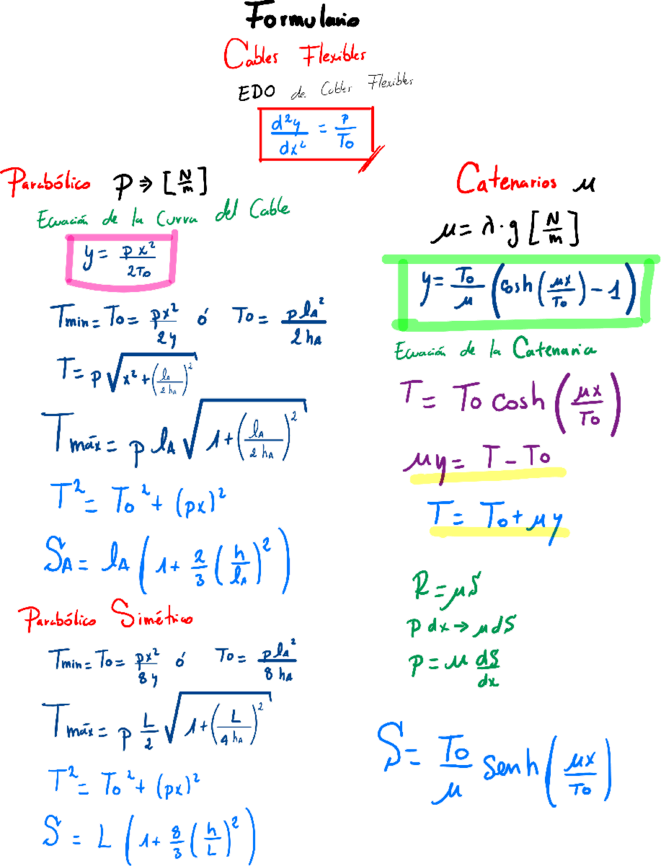 Formulario
Cables Flexibles
EDO de Cables Flexibles
d²y/dx² = P/To
Parabólico P ⇒ [N/m]
Ecuación de la Curva del Cable
y = Px²/2To
Tmin = To = px²/2y ó To = p lA²/2hA
T = p √(x² + (lA²/2hA)²)
Tmáx = p lA √(1 + (lA/2hA)²)
T² = To² + (px)²
SA = lA (1 + 2/3 (h/lA)²)
Parabólico Simétrico
Tmin = To = px²/8y ó To = p lA²/8hA
Tmáx = p L/2 √(1 + (L/4hA)²)
T² = To² + (px)²
S = L (1 + 8/3 (h/L)²)
Catenarios μ
μ = λ·g [N/m]
y = To/μ (cosh(μx/To) - 1)
Ecuación de la Catenaria
T = To cosh(μx/To)
μy = T - To
T = To + μy
R = μS
P dx → μdS
P = μ dS/dx
S = To/μ Senh(μx/To)